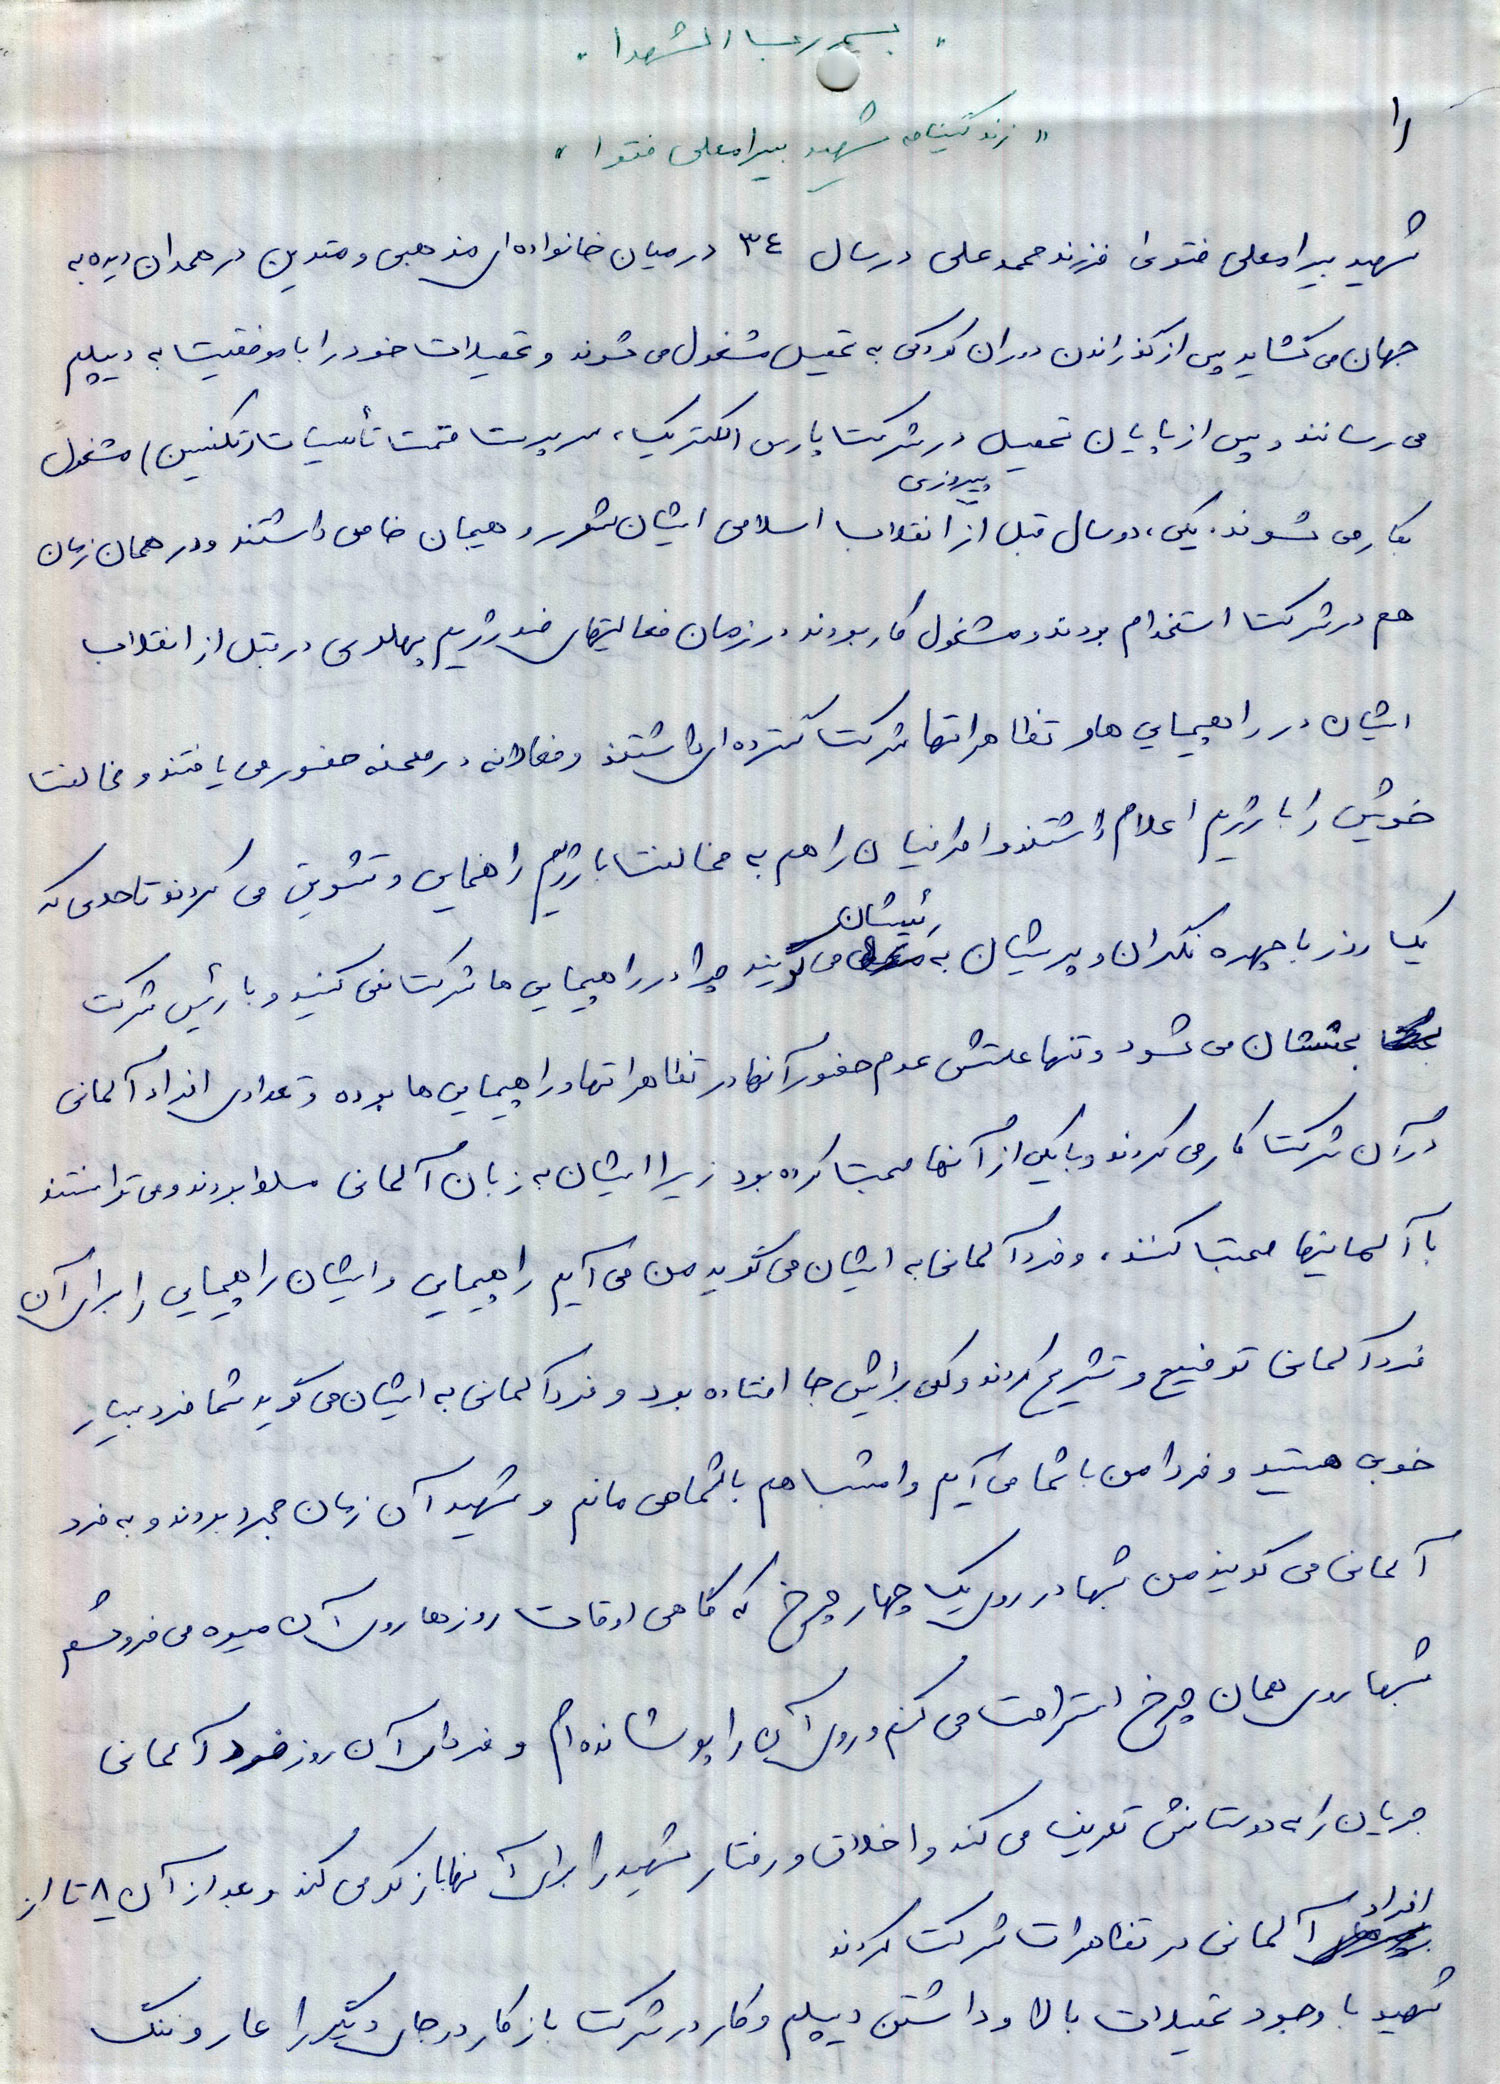 " بسم رب الشهدا "
۱/
" زندگینامه شهید بیرامعلی فتوا "
شهید بیرامعلی فتوای فرزند محمدعلی در سال ۳٤ در میان خانواده ای مذهبی و متدین در همدان دیده به
جهان می گشاید پس از گذراندن دوران کودکی به تحصیل مشغول می شوند و تحصیلات خود را با موفقیت به دیپلم
می رسانند و پس از پایان تحصیل در شرکت پارس الکتریک، سرپرست قسمت تأسیسات (تکنسین) مشغول
بکار می شوند. یکی، دو سال قبل از پیروزی انقلاب اسلامی ایشان شور و هیجان خاصی داشتند و در همان زمان
هم در شرکت استخدام بودند و مشغول کار بودند در زمان فعالیتهای ضد رژیم پهلوی در قبل از انقلاب
ایشان در راهپیمایی ها و تظاهراتها شرکت گسترده ای داشتند و فعالانه در صحنه حضور می یافتند و مخالفت
خویش را با رژیم اعلام داشتند و اطرافیان را هم به مخالفت با رژیم راهنمایی و تشویق می کردند تا حدی که
یک روز با چهره نگران و پریشان به رئیسشان می گویند چرا در راهپیمایی ها شرکت نمی کنید و با رئیس شرکت
بحثشان می شود و تنها علتش عدم حضور آنها در تظاهراتها و راهپیمایی ها بوده و تعدادی افراد آلمانی
در آن شرکت کار می کردند و با یکی از آنها صحبت کرده بود زیرا ایشان به زبان آلمانی مسلط بودند و می توانستند
با آلمانیها صحبت کنند، و فرد آلمانی به ایشان می گوید من می آیم راهپیمایی و ایشان راهپیمایی را برای آن
فرد آلمانی توضیح و تشریح کردند و کلی برایش جا افتاده بود و فرد آلمانی به ایشان می گوید شما فرد بسیار
خوبی هستید و فردا من با شما می آیم و امشب هم با شما می مانم و شهید آن زمان مجرد بودند و به فرد
آلمانی می گویند من شبها در روی یک چهار چرخ که گاهی اوقات روزها روی آن میوه می فروشم
شبها روی همان چرخ استراحت می کنم و روی آن را پوشانده ام و فردای آن روز خود آلمانی
جریان را به دوستانش تعریف می کند و اخلاق و رفتار شهید را برای آنها بازگو می کند و بعد از آن ۸ تا از
افراد آلمانی در تظاهرات شرکت کردند
شهید با وجود تحصیلات بالا و داشتن دیپلم و کار در شرکت باز کار در جای دیگر را عار و ننگ